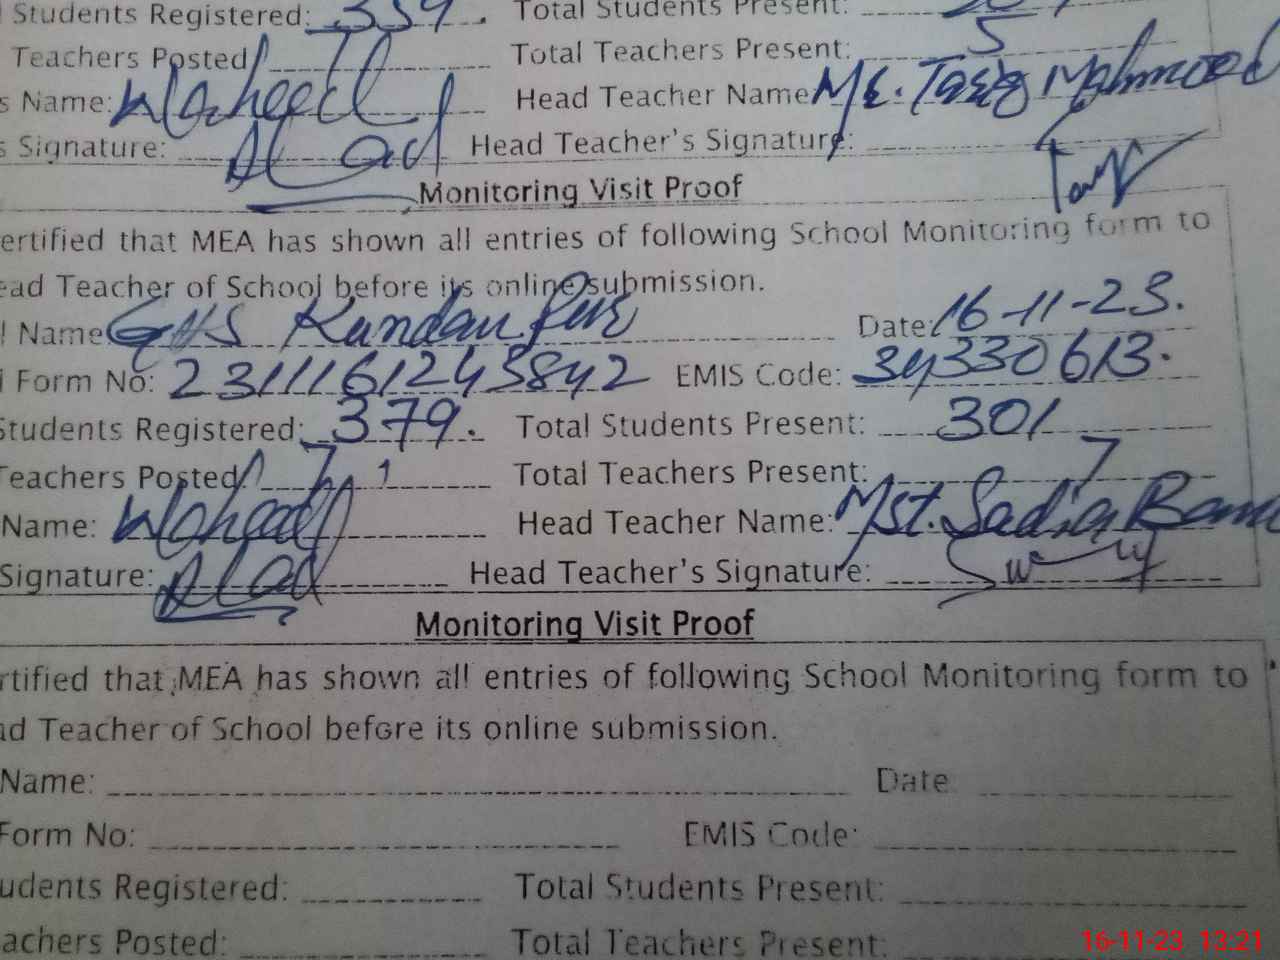 Students Registered: 359. Total Students Present:
Teachers Posted Total Teachers Present: 5
s Name: Waheed Head Teacher Name Mr. Tariq Mahmood
s Signature: Head Teacher's Signature:
Monitoring Visit Proof
ertified that MEA has shown all entries of following School Monitoring form to
ead Teacher of School before its online submission.
l Name: GHS Kundan Pur Date: 16-11-23.
i Form No: 231116124 3842 EMIS Code: 34330613.
Students Registered: 379. Total Students Present: 301
Teachers Posted 7 Total Teachers Present: 7
Name: Waheed Head Teacher Name: Mst. Sadia Ban
Signature: Head Teacher's Signature:
Monitoring Visit Proof
rtified that MEA has shown all entries of following School Monitoring form to
ad Teacher of School before its online submission.
Name: Date
Form No: EMIS Code:
udents Registered: Total Students Present:
achers Posted: Total Teachers Present:
16-11-23 13:21